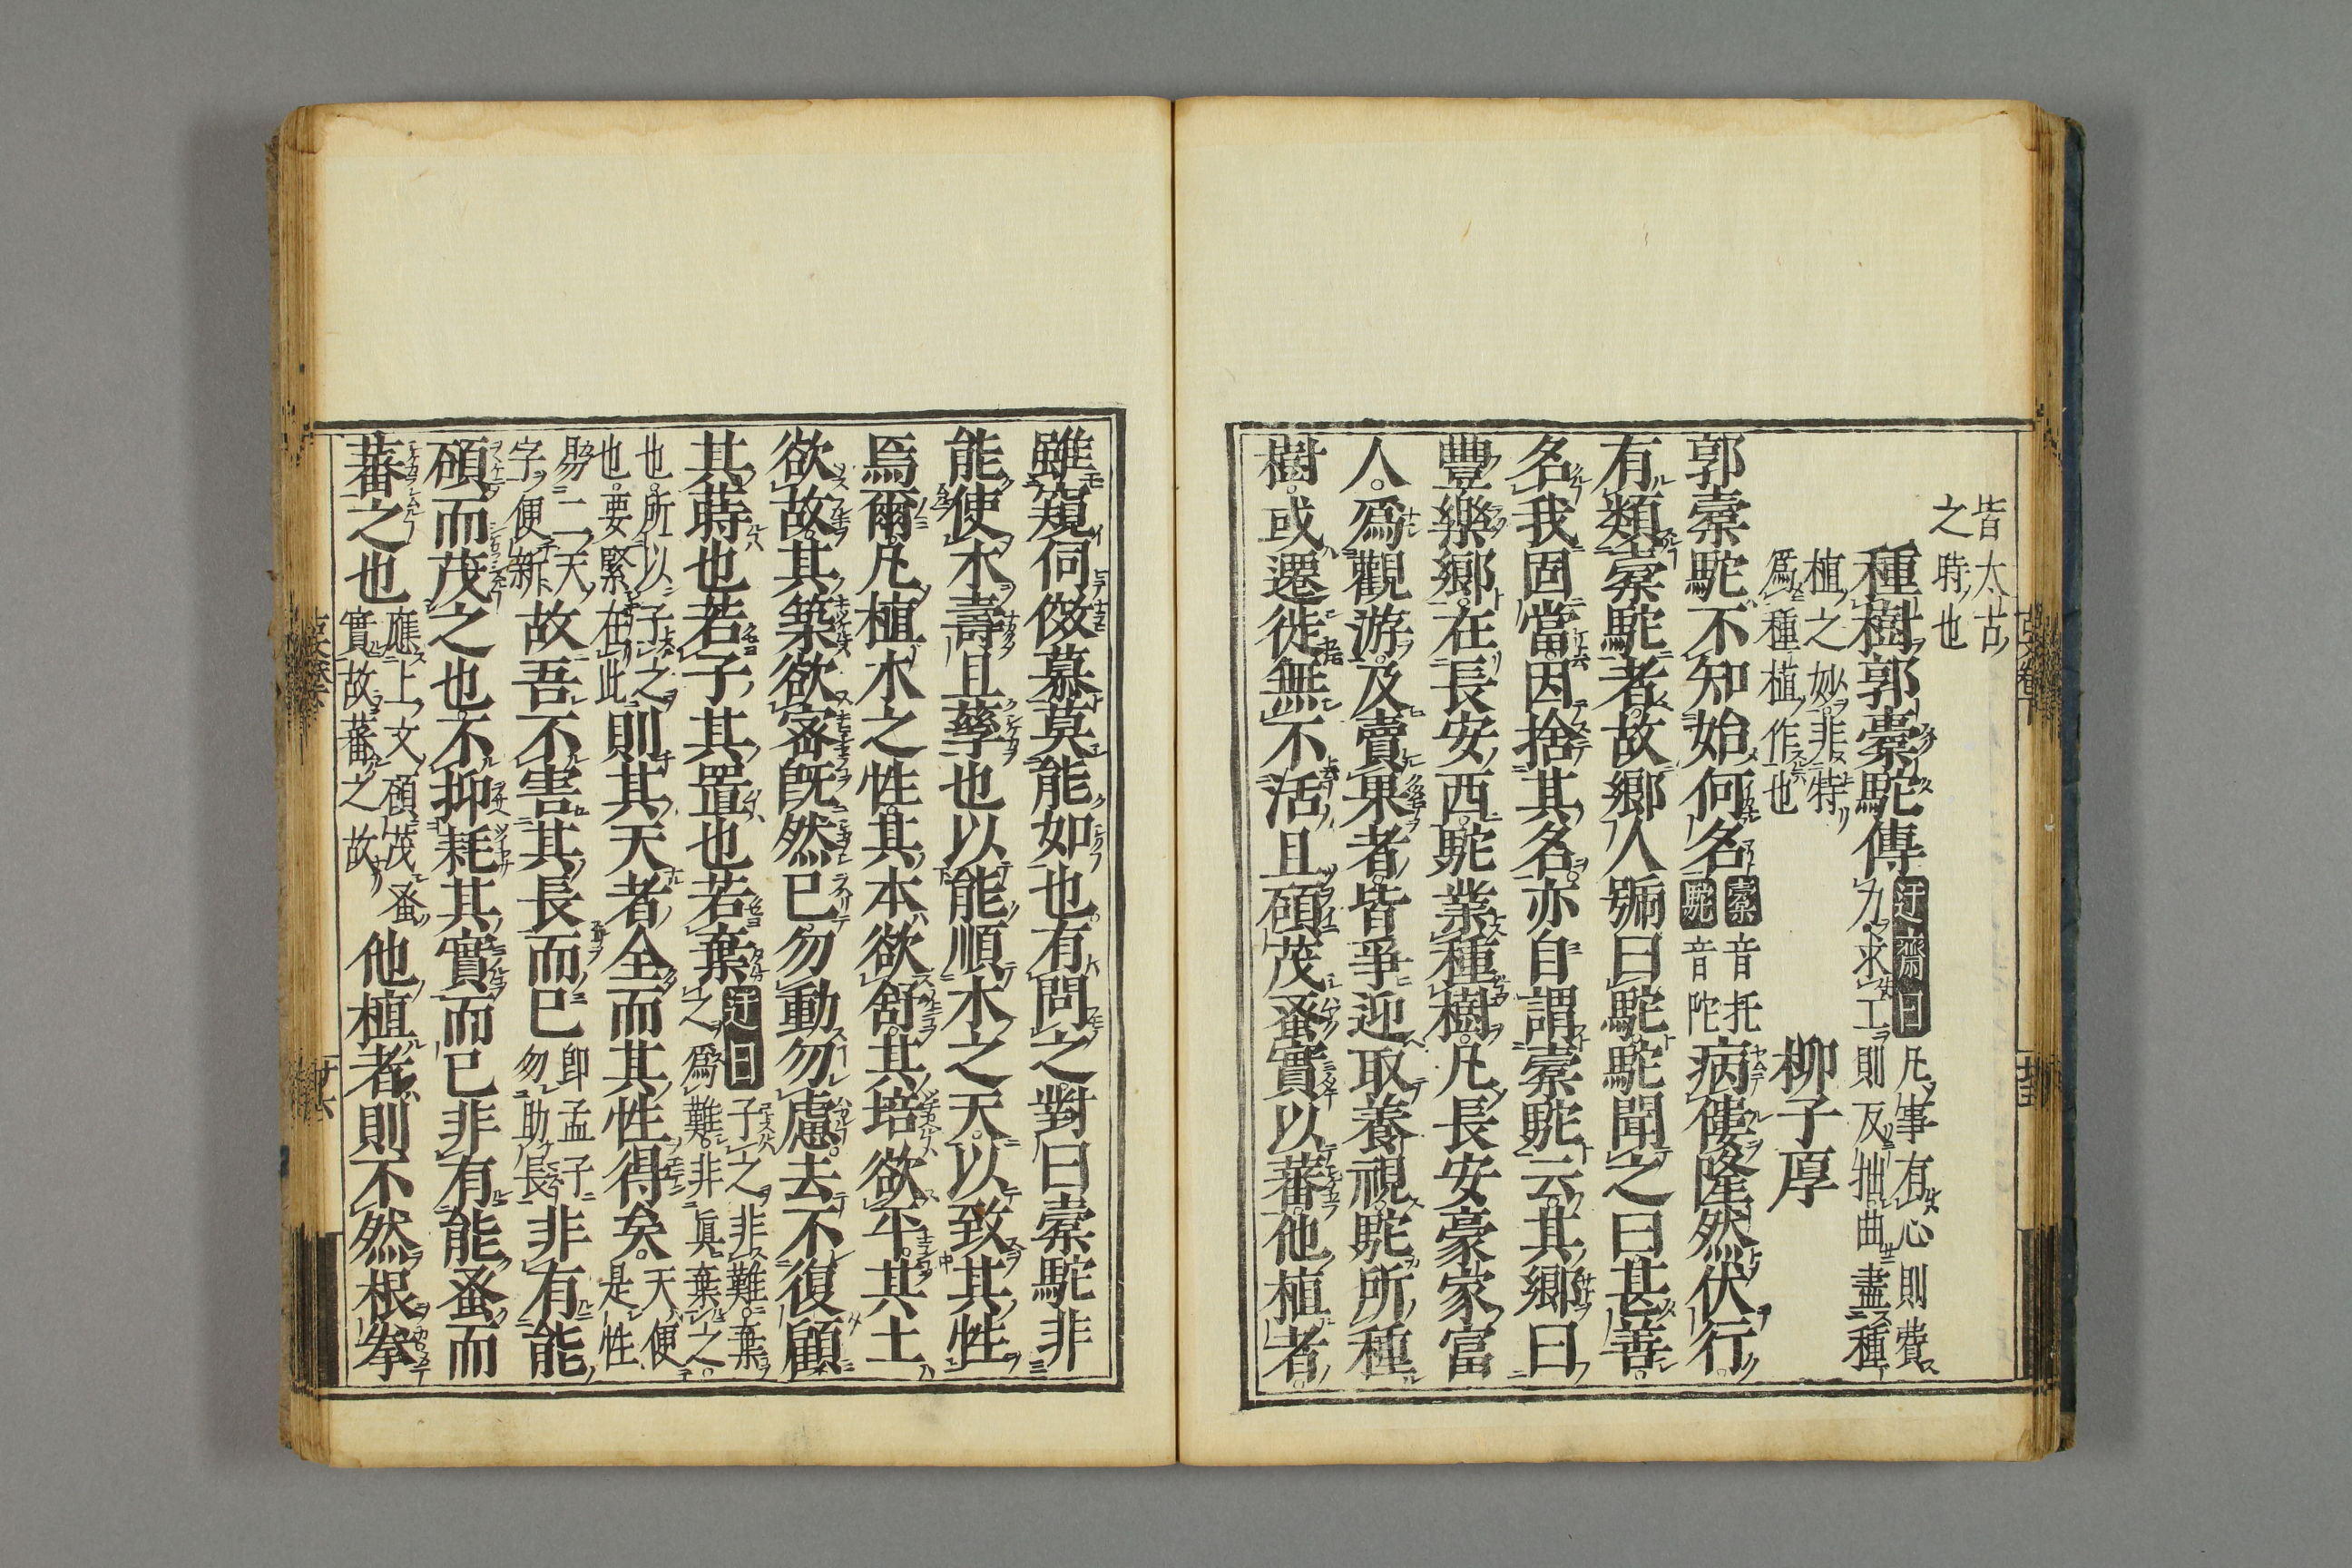 皆太古
之時也
種樹郭橐駝傳 迂齋曰 凡事有心則費
力求工則反拙曲盡種
植之妙非特
爲種植作也
柳子厚
郭橐駝不知始何名 橐音托
駝音陀 病僂隆然伏行
有類橐駝者故鄉人號曰駝駝聞之曰甚善
名我固當因捨其名亦自謂橐駝云其鄉曰
豐樂鄉在長安西駝業種樹凡長安豪家富
人爲觀游及賣果者皆爭迎取養視駝所種
樹或遷徙無不活且碩茂蚤實以蕃他植者
雖窺伺傚慕莫能如也有問之對曰橐駝非
能使木壽且孳也以能順木之天以致其性
焉爾凡植木之性其本欲舒其培欲平其土
欲故其築欲密既然已勿動勿慮去不復顧
其蒔也若子其置也若棄 迂曰 子之非難棄
之爲難非眞棄之
也所以子之
也要緊在此 則其天者全而其性得矣 天便
是性
勗二天
字便新 故吾不害其長而已 卽孟子
勿助長 非有能
碩而茂之也不抑耗其實而已非有能蚤而
蕃之也 應上文碩茂蚤
實故蕃之故 他植者則不然根拳